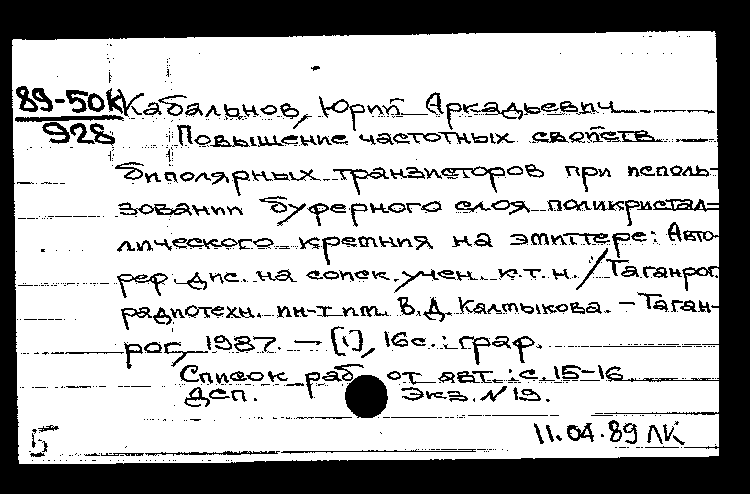 89-50к Кабальнов, Юрий Аркадьевич
928 Повышение частотных свойств
биполярных транзисторов при исполь-
зовании буферного слоя поликристал-
лического кремния на эмиттере: Авто-
реф. дис. на соиск. учен. к.т.н. / Таганрог.
радиотехн. ин-т им. В.Д. Калмыкова. – Таган-
рог, 1987. – [1], 16с.: граф.
Список раб. от авт.: с. 15-16
ДСП. Экз. №19.
5 11.04.89 ЛК